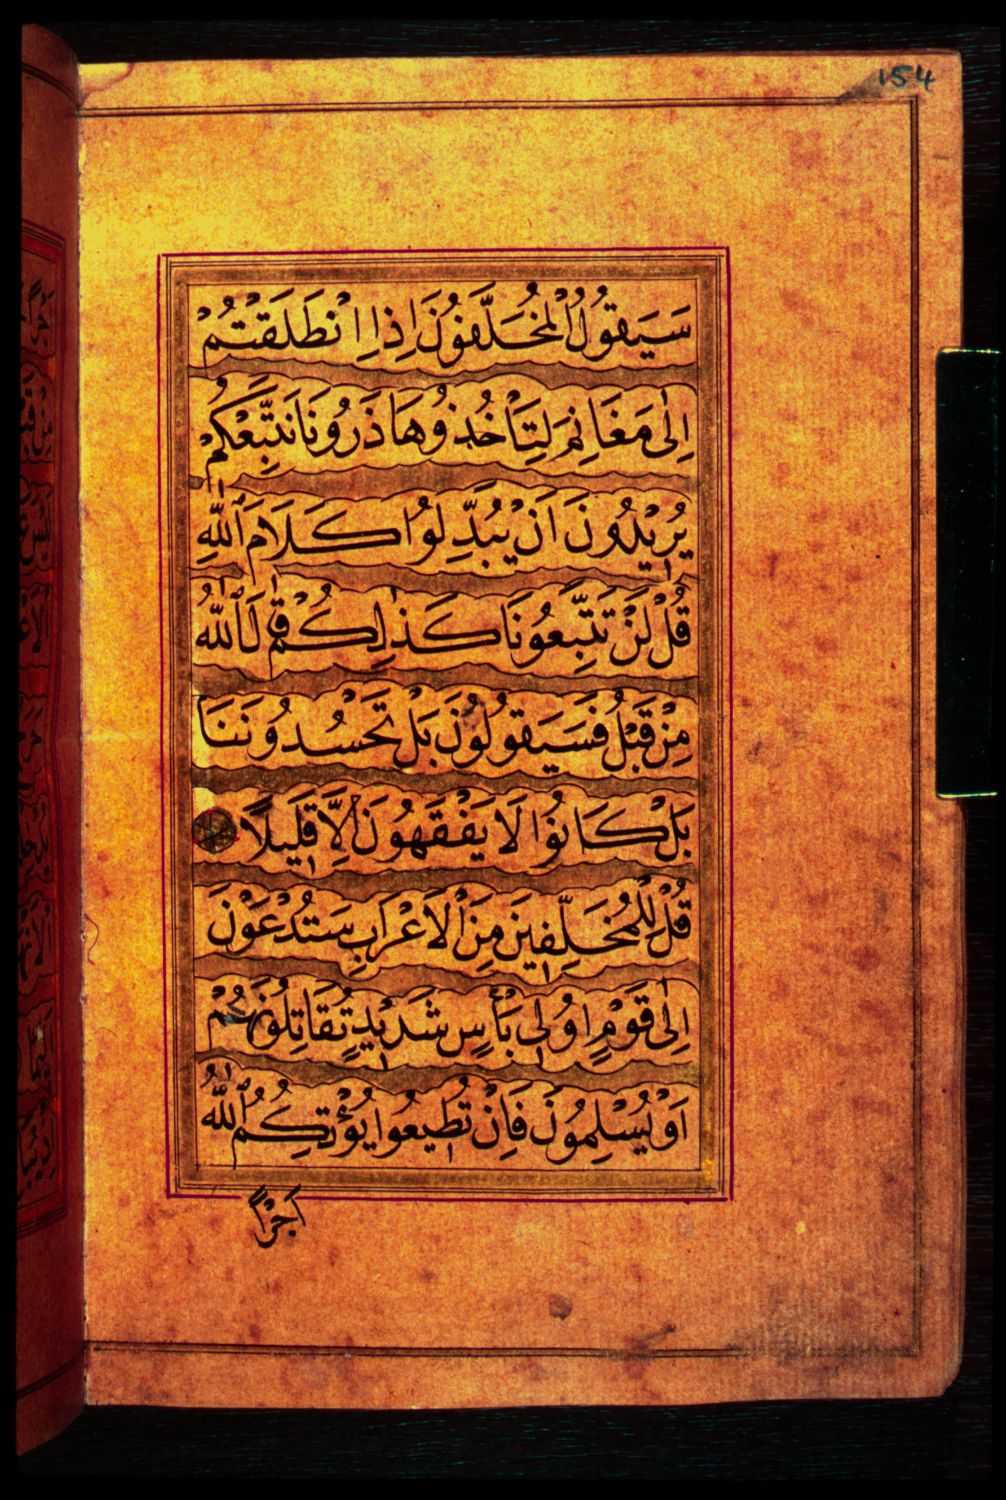 154
سَيَقُولُ الْمُخَلَّفُونَ اِذَا انْطَلَقْتُمْ
اِلٰى مَغَانِمَ لِتَأْخُذُوهَا ذَرُونَا نَتَّبِعْكُمْ
يُرِيْدُونَ اَنْ يُبَدِّلُوا كَلَامَ اللّٰهِ
قُلْ لَنْ تَتَّبِعُونَا كَذٰلِكُمْ قَالَ اللّٰهُ
مِنْ قَبْلُ فَسَيَقُولُونَ بَلْ تَحْسُدُونَنَا
بَلْ كَانُوا لَا يَفْقَهُونَ اِلَّا قَلِيلًا
قُلْ لِلْمُخَلَّفِينَ مِنَ الْاَعْرَابِ سَتُدْعَوْنَ
اِلٰى قَوْمٍ اُولِى بَأْسٍ شَدِيْدٍ تُقَاتِلُونَهُمْ
اَوْ يُسْلِمُونَ فَاِنْ تُطِيعُوا يُؤْتِكُمُ اللّٰهُ
اَجْرًا